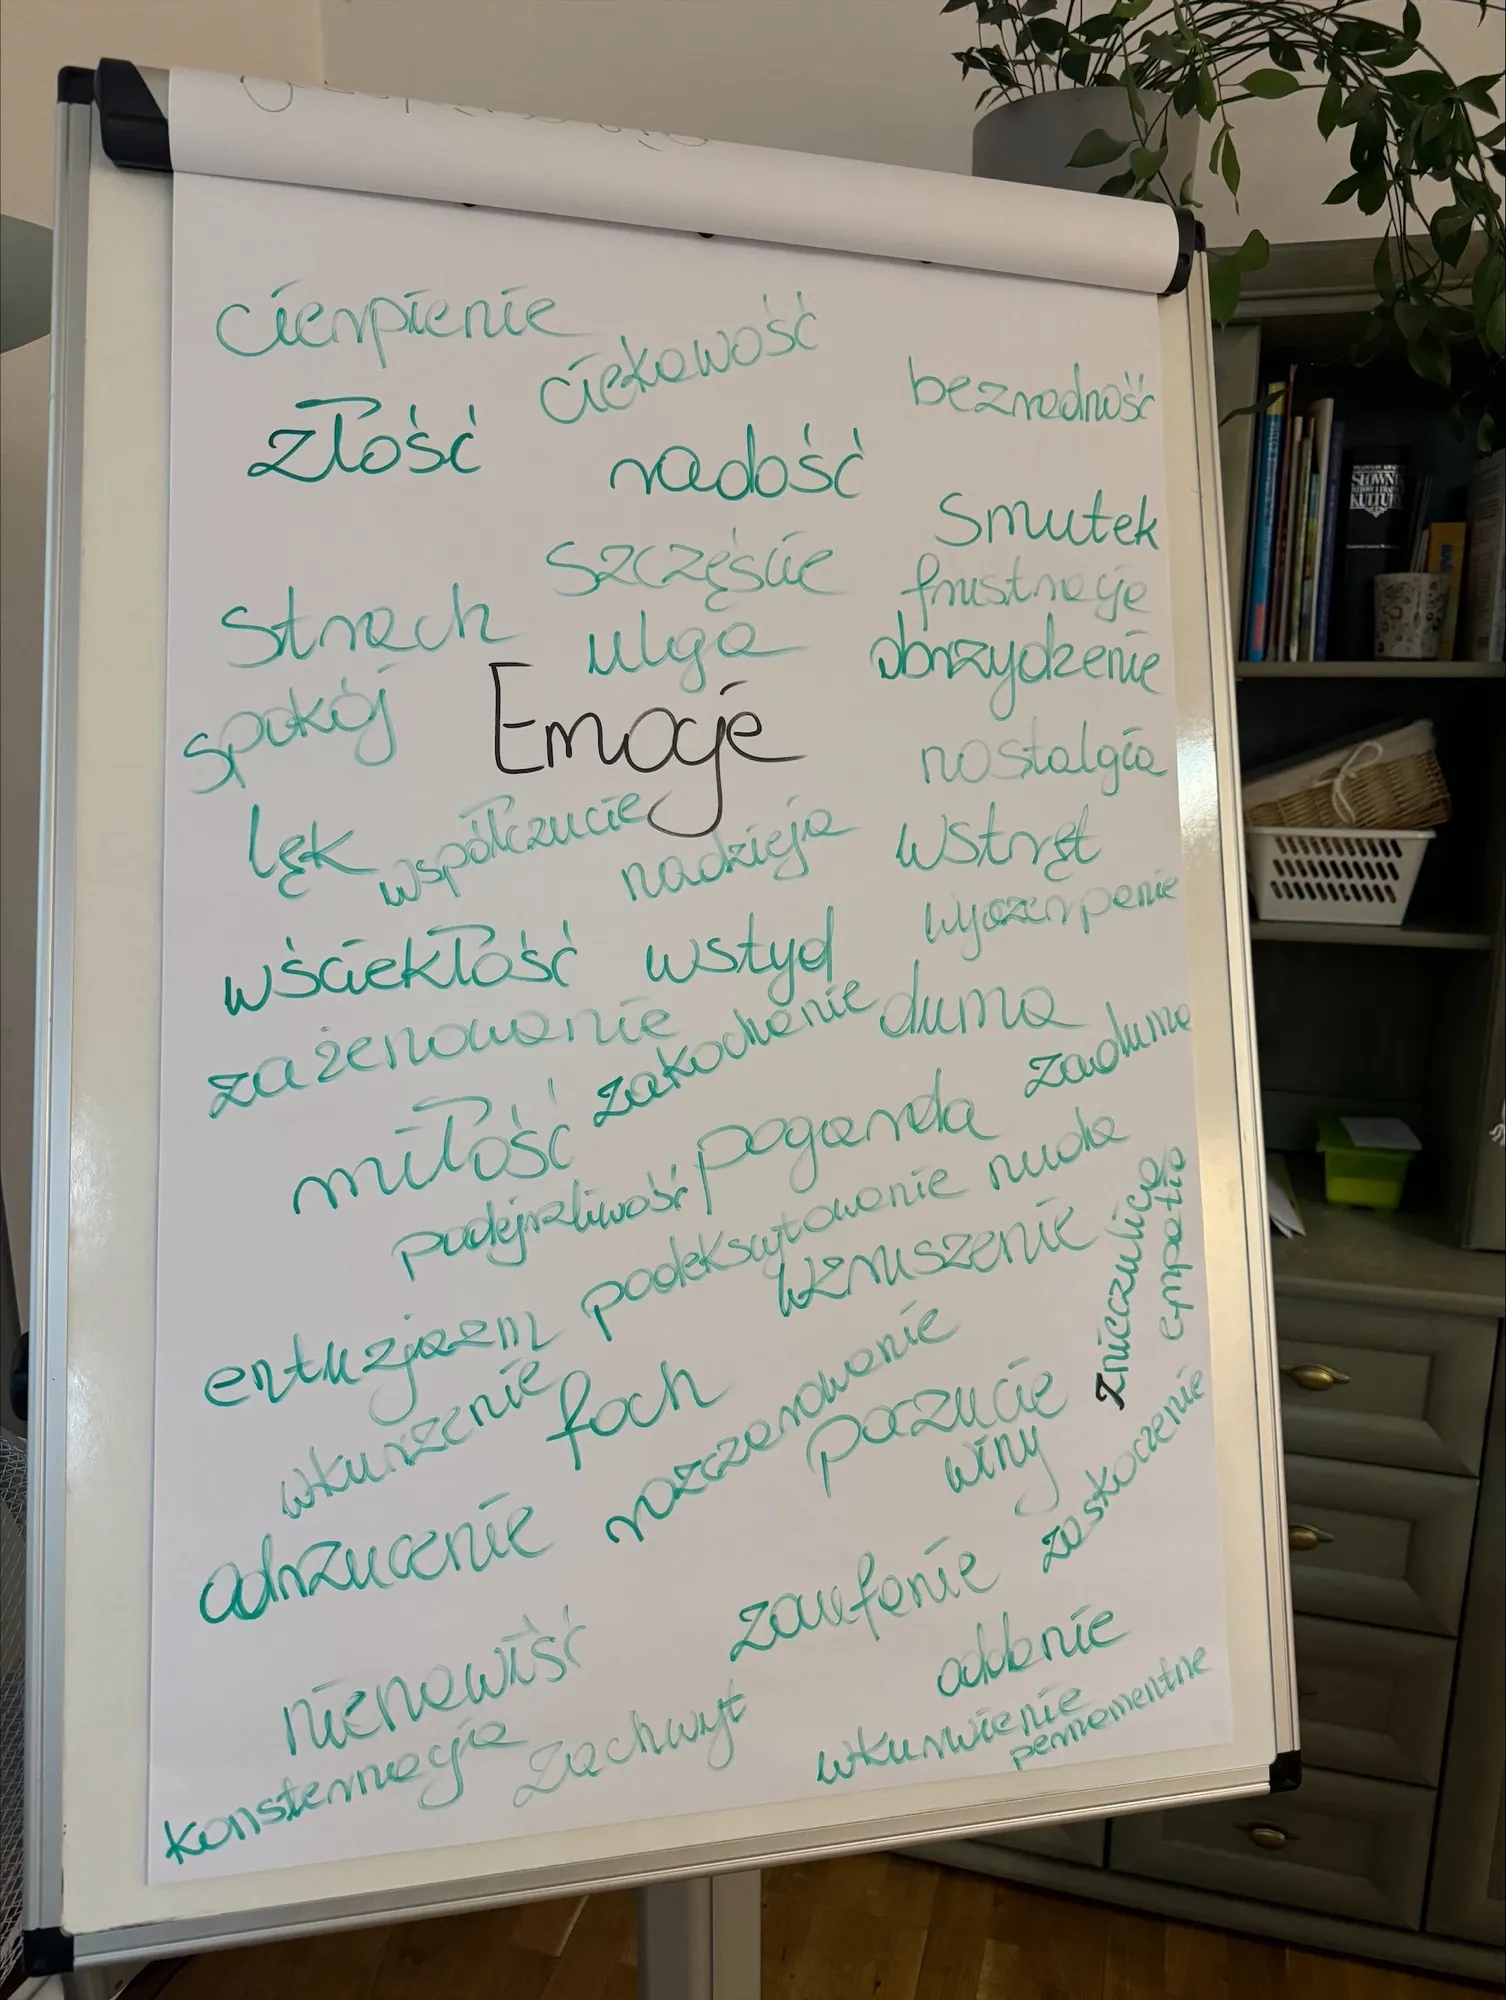 cierpienie
ciekawość
bezradność
złość
radość
Smutek
szczęście
frustracja
strach
ulga
obrzydzenie
spokój
Emocje
nostalgia
lęk
współczucie
nadzieja
wstręt
wyczerpanie
wściekłość
wstyd
zażenowanie
zakochanie
duma
zaduma
miłość
pogarda
nuda
podejrzliwość
podekscytowanie
wzruszenie
znieczulica
empatia
entuzjazm
wkurzenie
foch
rozczarowanie
poczucie
winy
zaskoczenie
odrzucenie
zaufanie
oddanie
nienawiść
zachwyt
wkurwienie
permamentne
konsternacja
SŁOWNIK
KULTURY